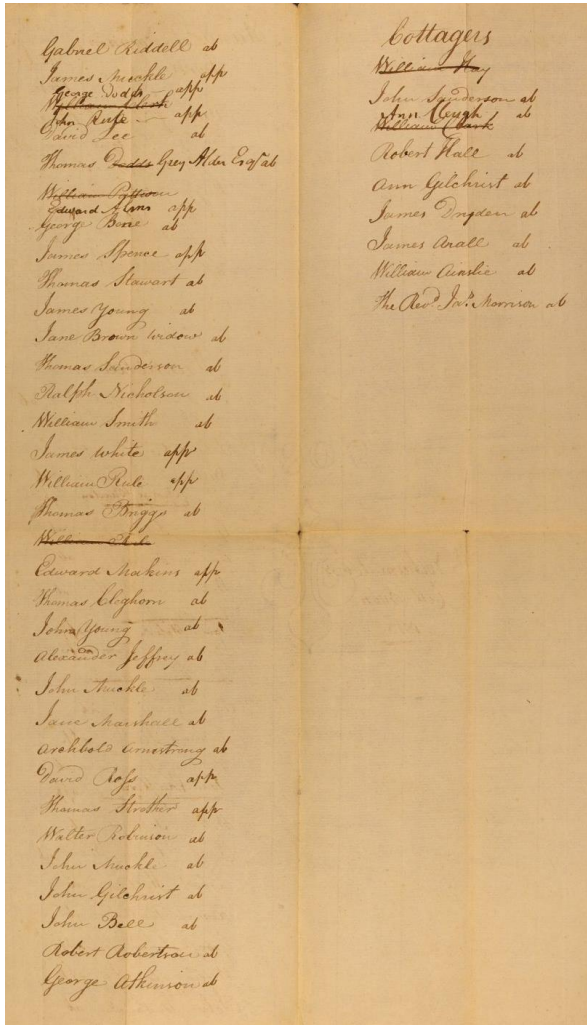 Gabriel Riddell ab
James Muckle app
George Dodds app
William Clark
John Rule app
David Lee ab
Thomas Dodds Grey Alder Esqr ab
William
Edward app
George Bone ab
James Spence app
Thomas Stawart ab
James Young ab
Jane Brown widow ab
Thomas Sanderson ab
Ralph Nicholson ab
William Smith ab
James White app
William Rule app
Thomas Briggs ab
William
Edward Makins app
Thomas Cleghorn ab
John Young ab
Alexander Jeffrey ab
John Muckle ab
Jane Marshall ab
Archbold Armstrong ab
David Ross app
Thomas Strother app
Walter Robinson ab
John Muckle ab
John Gilchrist ab
John Bell ab
Robert Robertson ab
George Atkinson ab
Cottagers
William Hay
John Sanderson ab
Ann Clough ab
William Clark
Robert Hall ab
Ann Gilchrist ab
James Dryden ab
James Arall ab
William Ainslie ab
The Revd Jas Morrison ab